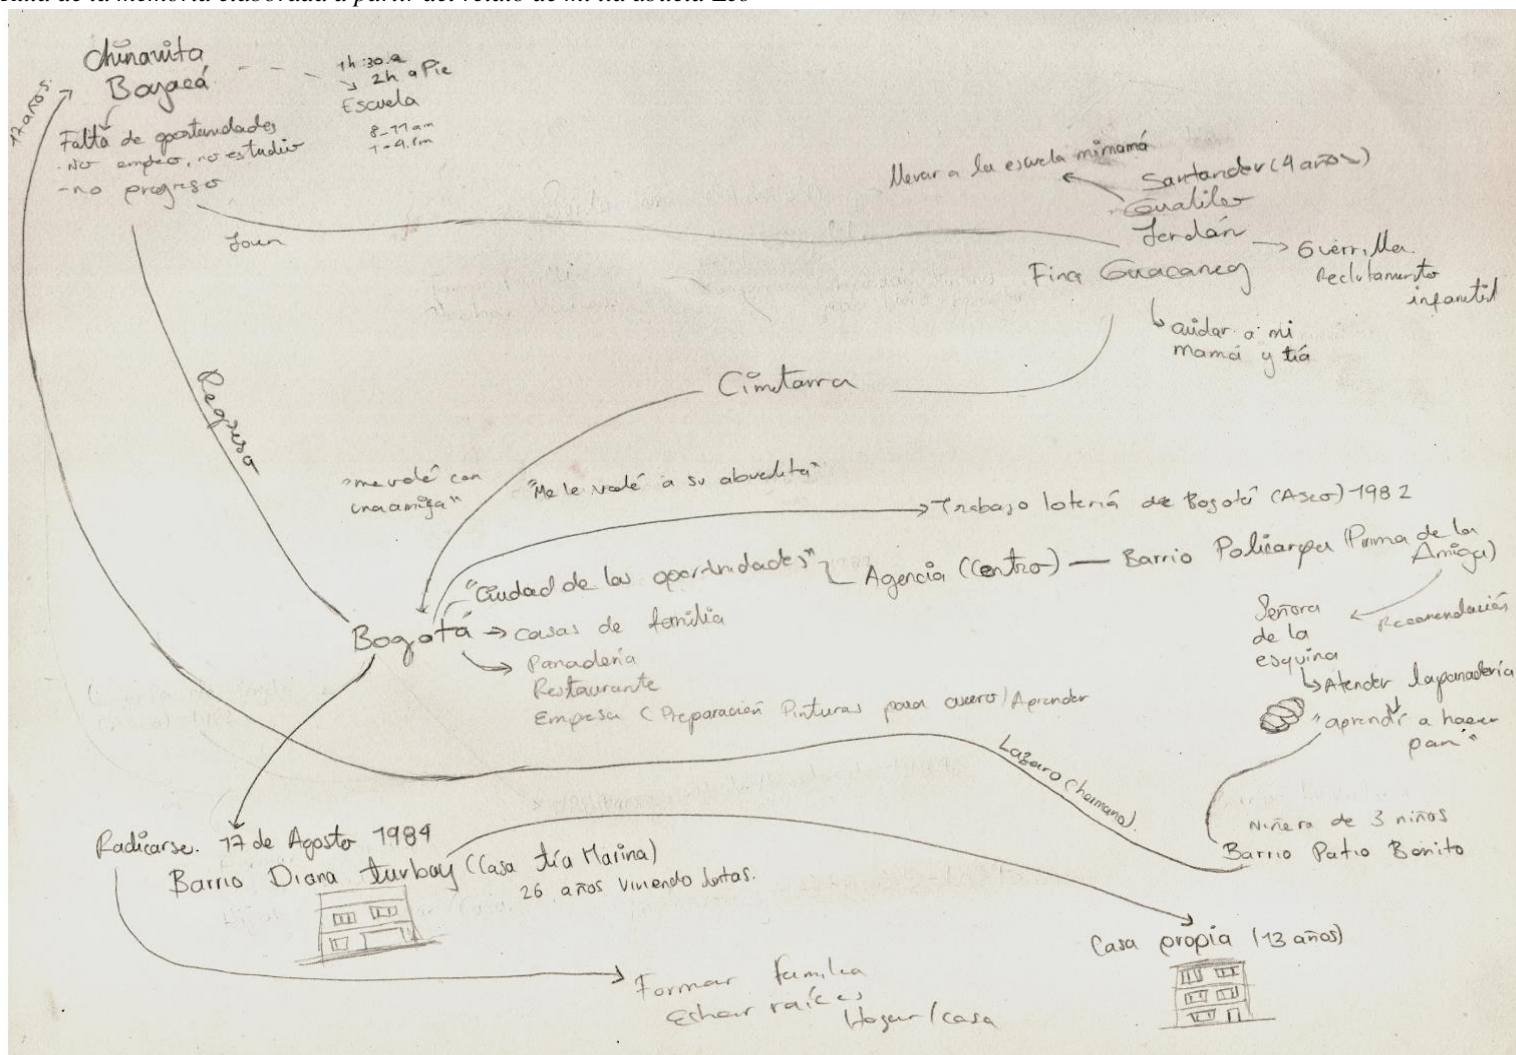 Chinavita
Boyacá
1h:30 a
2h a Pie
Escuela
8-11 am
1-4 pm
17 años.
Falta de oportunidades
- No empleo, no estudio
- no progreso
Llevar a la escuela mi mamá
Santander (4 años)
Jordán
Guerrilla.
Reclutamiento
infantil
Finca
cuidar a mi
mamá y tía
Cimitarra
Regreso
"me volé con
una amiga"
"Me le volé a su abuelita"
Trabajo lotería de Bogotá (Aseo) 1982
"Ciudad de las oportunidades"
Agencia (Centro) — Barrio Policarpa (Prima de la
Amiga)
Bogotá
casas de familia
Panadería
Restaurante
Empresa (Preparación Pinturas para cuero) Aprender
Señora
de la
esquina
Recomendación
Atender la panadería
"aprendí a hacer
pan"
Lázaro (hermano).
Niñera de 3 niños
Barrio Patio Bonito
Radicarse. 17 de Agosto 1984
Barrio Diana turbay (Casa tía Marina)
26 años viviendo
Casa propia (13 años)
Formar familia
Echar raíces
Hogar/casa